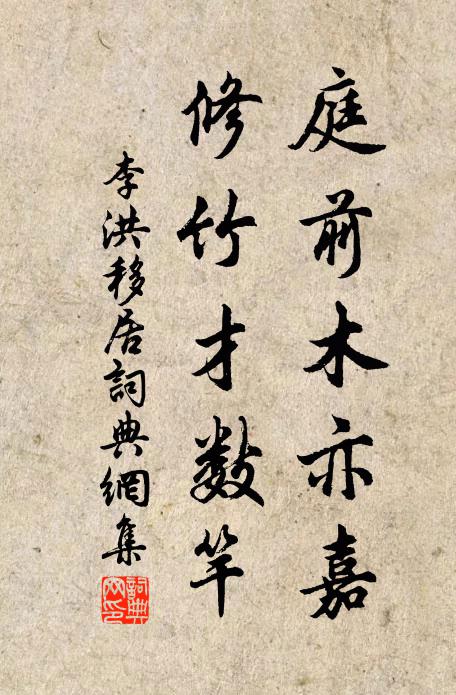 庭前木亦嘉
修竹才數竿
李洪移居詞典網集
詞典網印